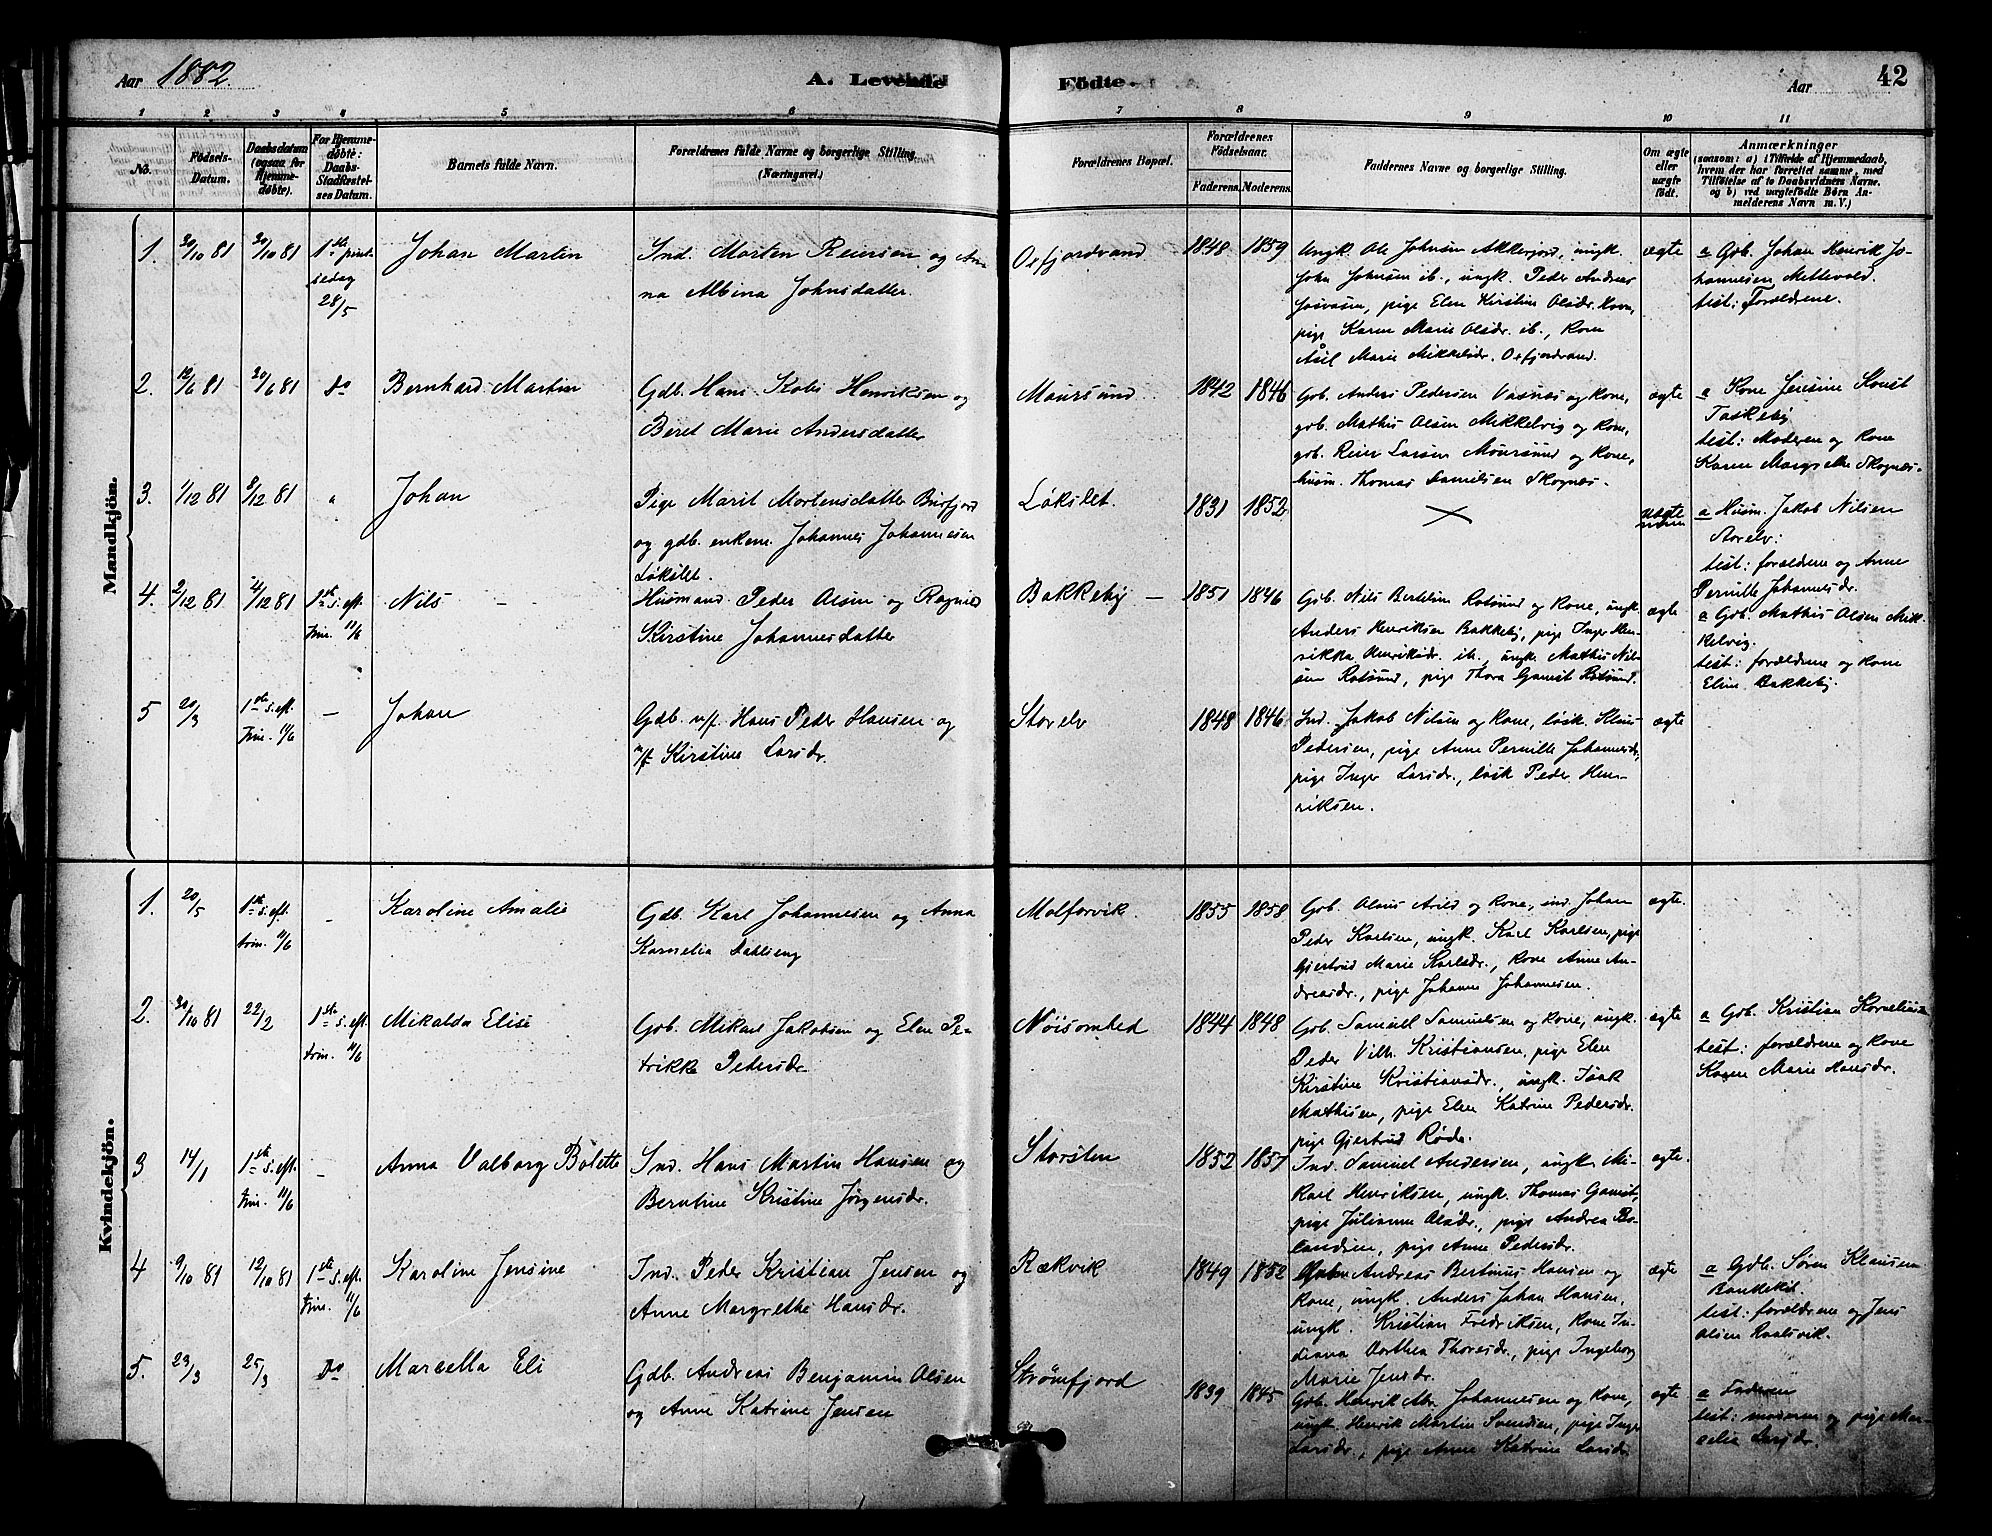 Aar 1882.
A. Levende
Födte.
Aar
42
1 2 3 4 5 6 7 8 9 10 11
No.
Födsels-
Datum.
Daabsdatum
(ogsaa for
Hjemme-
döbte).
For Hjemme-
döbte:
Daabs-
Stadfæstel-
ses Datum.
Barnets fulde Navn.
Forældrenes fulde Navne og borgerlige Stilling.
(Næringsvei.)
Forældrenes Bopæl.
Forældrenes
Födselsaar.
Faderens. Moderens.
Faddernes Navne og borgerlige Stilling.
Om ægte
eller
uægte
født.
Anmærkninger
(saasom: a) i Tilfælde af Hjemmedaab,
hvem der har forrettet samme, med
Tilföielse af to Daabsvidners Navne,
og b) ved uægtefödte Börn An-
melderens Navn m. V.)
Mandkjön.
1.
30/10 81
30/10 81
1ste pint-
sedag
28/5
Johan Martin
Ind. Morten Reiersen og An-
na Albina Johnsdatter.
Oxfjordvand
1848 1859
Ungk. Ole Johnsen Akkerfjord, ungk.
John Johnsen ib., ungk. Peder Andreas
pige Elen Kirstine Olsdr.
pige Karen Marie Olsdr. ib., kone
Marie Mikkelsdr. Oxfjordvand.
ægte
a Gdb. Johan Henrik Jo-
hannesen Mettevold.
test: Forældrene.
2.
12/6 81
20/6 81
Do
Bernhard Martin
Gdb. Hans Henriksen og
Beret Marie Andersdatter
Maursund
1842 1846
Gdb. Anders Pedersen Vasnæs og kone,
gdb. Mathis Olsen Mikkelvig og kone,
gdb. Reier Larsen Maursund og kone,
husm. Thomas Samuelsen Skognæs.
ægte
a Kone Jensine
Taskeby
test: Moderen og kone
Karen Margrethe Skognæs.
3.
1/12 81
8/12 81
"
Johan
Pige Marit Mortensdatter Burfjord
og gdb. enkem. Johannes Johannesen
Løkslet.
Løkslet.
1831 1852
X
uægte
a Husm. Jakob Nilsen
Storelv:
test: forældrene og Anne
Pernille Johannesdr.
4.
2/12 81
4/12 81
1ste s. eft.
Trin. 11/6
Nils
Husmand Peder Olsen og Ragnild
Kirstine Johannesdatter
Bakkeby
1851 1846
Gdb. Nils Bertelsen Rotsund og kone, ungk.
Anders Henriksen Bakkeby, pige Inger Hen-
rikka Henriksdr. ib., ungk. Mathis Nil-
sen Rotsund, pige Thora Gamst Rotsund.
ægte
a Gdb. Mathis Olsen Mik-
kelvig.
test: forældrene og kone
Elen Bakkeby.
5
20/3
1ste s. eft.
Trin. 11/6
—
Johan
Gdb. n/f. Hans Peder Hansen og
n/f Kirstine Larsdr.
Storelv
1848 1846
Ind. Jakob Nilsen og kone, løsk. Klaus
Pedersen, pige Anne Pernille Johannesdr.,
pige Inger Larsdr., løsk Peder Hen-
riksen.
ægte
Kvindekjön.
1.
20/5
1ste s. eft.
trin. 11/6
—
Karoline Amalie
Gdb. Karl Johannesen og Anna
Kornelia Dahleng
Molforvik.
1855 1858
Gdb. Olaus Arild og kone, ind. Johan
Peder Karlsen, ungk. Karl Karlsen, pige
Gjertrud Marie Karlsdr., kone Anne An-
dreasdr., pige Johanne Johannesen.
ægte.
2.
30/10 81
22/2
1ste s. eft.
trin. 11/6
Mikalda Elise
Gdb. Mikael Jakobsen og Elen Pe-
trikke Pedersdr
Nøisomhed
1844 1848
Gdb. Samuel Samuelsen og kone, ungk.
Peder Vilh. Kristiansen, pige Elen
Kirstine Kristiansdr., ungk. Isak
Mathisen, pige Elen Katrine Pedersdr.
pige Gjertrud Røde.
ægte
a Gdb. Kristian Kornelius
test: forældrene og kone
Karen Marie Hansdr.
3
14/1
1ste s. eft.
trin. 11/6
—
Anna Valborg Bolette
Ind. Hans Martin Hansen og
Berntine Kristine Jørgensdr.
Storsten
1852 1857
Ind. Samuel Andersen, ungk. Mi-
kael Henriksen, ungk. Thomas Gamst,
pige Julianne Olsdr., pige Andrea Ro-
landsen, pige Anne Pedersdr.
ægte.
4
9/10 81
12/10 81
1ste s. eft.
Trin. 11/6
Karoline Jensine
Ind. Peder Kristian Jensen og
Anne Margrethe Hansdr.
Rækvik
1849 1852
Andreas Bertinus Hansen og
kone, ungk. Anders Johan Hansen,
ungk. Kristian Fredriksen, kone In-
diana Dorthea Thoresdr., pige Ingeborg
Marie Jensdr.
ægte
a Gdb. Søren Klausen
test: forældrene og Jens
Olsen
5.
23/3
25/3
Do
Marcella Eli
Gdb. Andreas Benjamin Olsen
og Anne Katrine Jensen
Strømfjord
1839 1845
Gdb. Henrik Mr. Johannesen og kone,
ungk. Henrik Martin Svendsen, pige Inger
Larsdr., pige Anne Katrine Larsdr
ægte
a Faderen
test: moderen og pige Mar-
celia Larsdr.